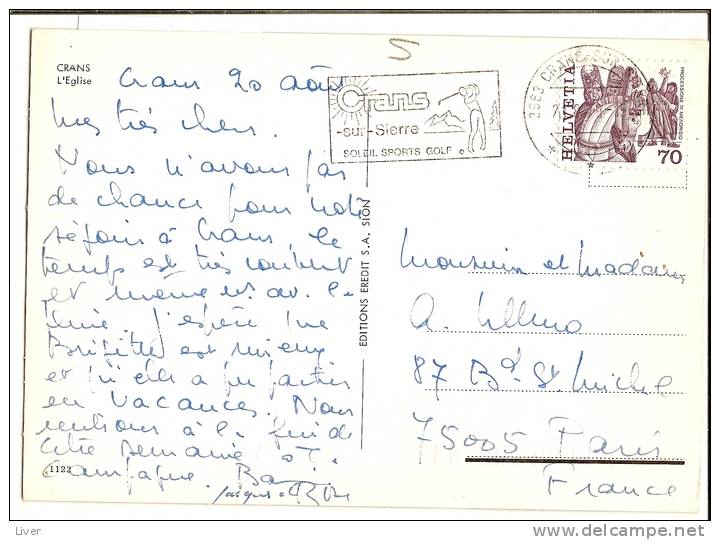 CRANS
L'Eglise
Crans 20 août
Mes très chers.
Nous n'avons pas
de chance pour notre
séjour à Crans, le
temps est très
et même
J'espère que
Brigitte est mieux
et qu'elle a pu partir
en vacances. Nous
rentrons à la fin de
cette semaine
campagne.
1122
EDITIONS EREDIT S.A. SION
Crans
-sur-Sierre
SOLEIL SPORTS GOLF
2963 CRANS-SUR
HELVETIA
PROCESSIONE DI MENDRISIO
70
Monsieur et Madame
A.
87 Bd. St. Michel
75005 Paris
France
Liver
delcampe.net